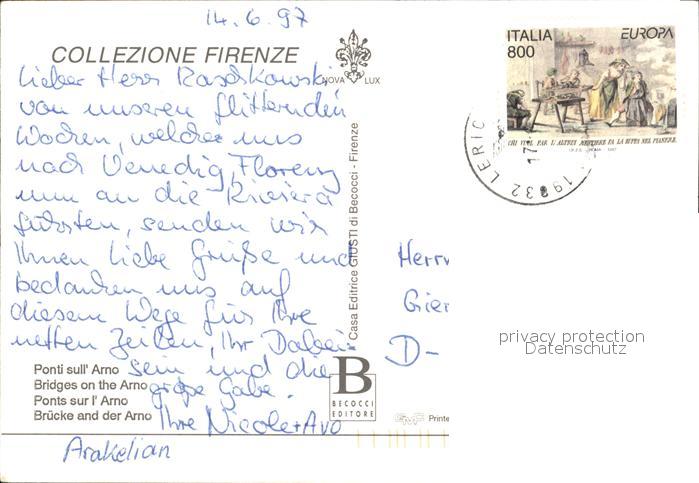 14.6.97
COLLEZIONE FIRENZE
NOVA LUX
Lieber Herr Raschkowski
von unseren Flitternden
Wochen, welche uns
nach Venedig, Florenz
nun an die Riviera
führten, senden wir
Ihnen liebe Grüße und
bedanken uns auf
diesem Wege für Ihre
netten Zeilen, Ihr Dabei-
sein und die
große Gabe.
Ihre Nicole + Avo
Arakelian
Ponti sull' Arno
Bridges on the Arno
Ponts sur l' Arno
Brücke and der Arno
Casa Editrice GIUSTI di Becocci - Firenze
B
BECOCCI
EDITORE
Printe
ITALIA
800
EUROPA
CHI VIVE PAR L'ALTRUI MESTIERE FA LA ZUPPA NEL PANIERE.
19032 LERIC
17
Herrn
Gier
D-
privacy protection
Datenschutz